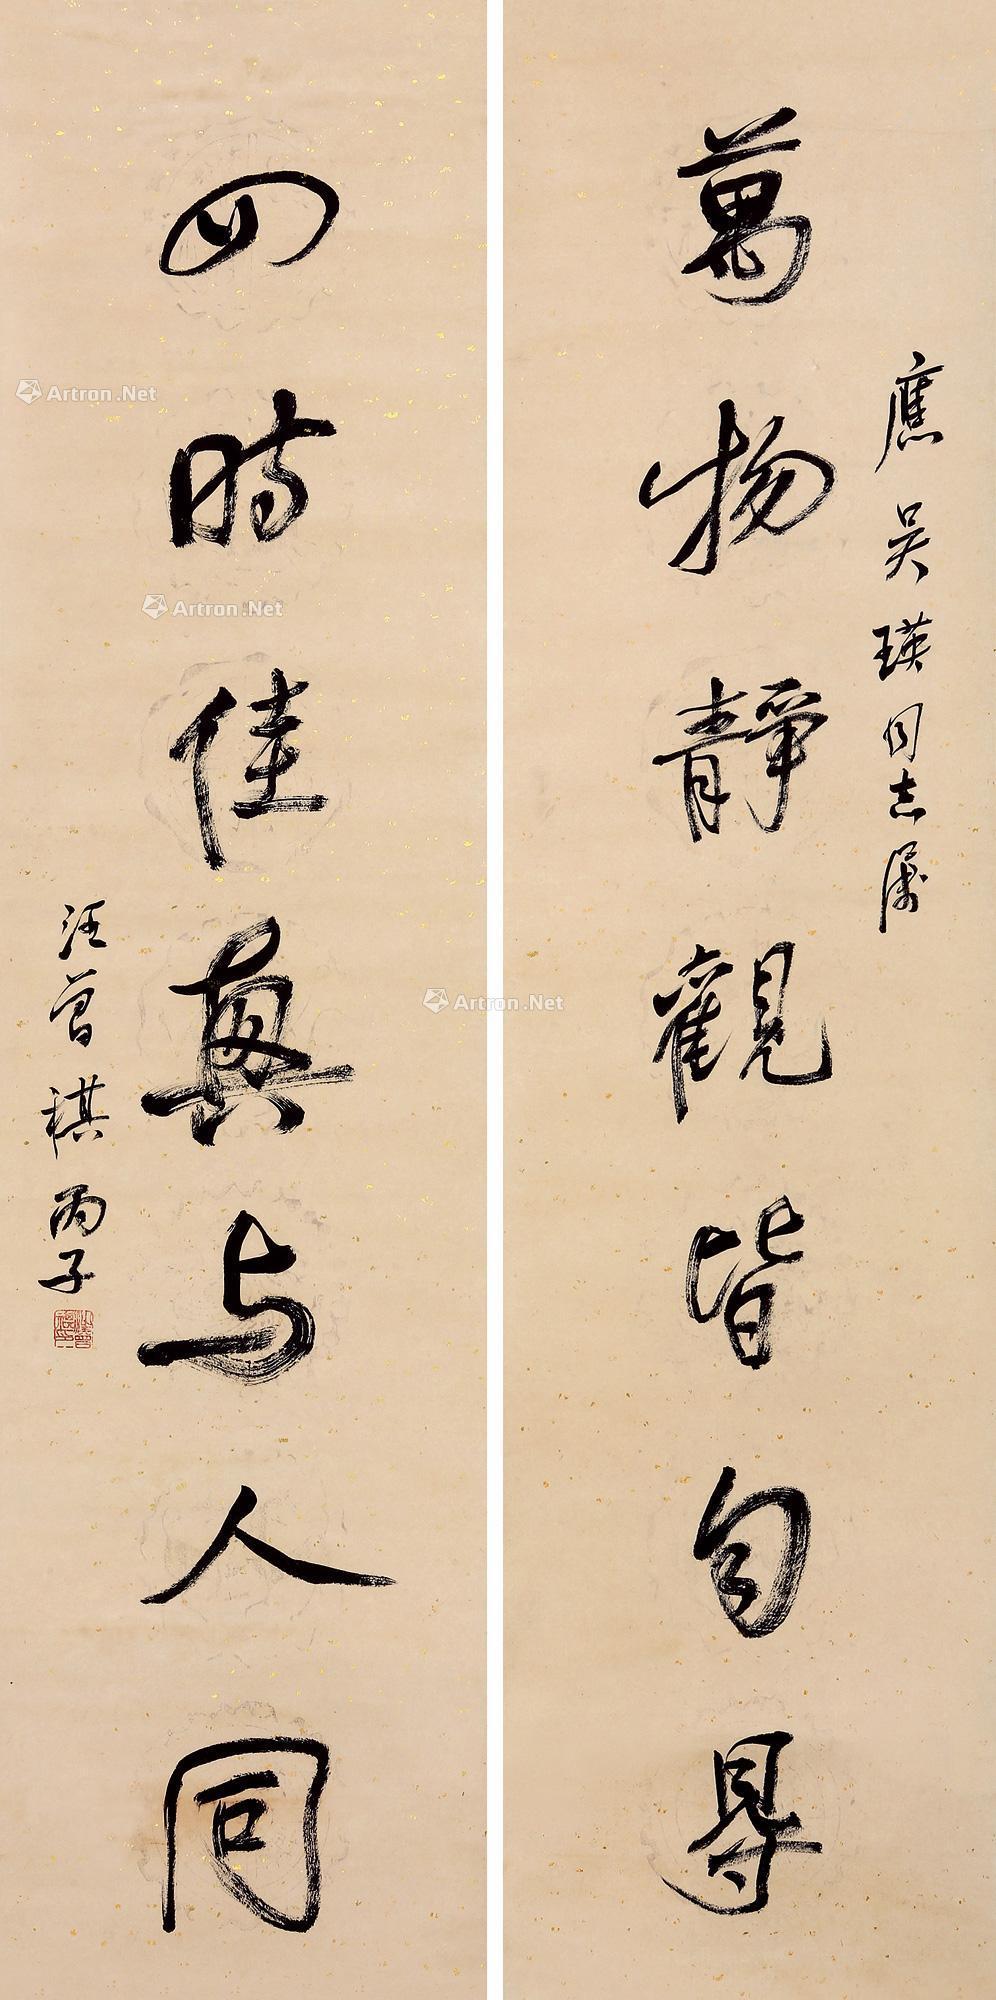 應吴瑛同志属
萬物靜觀皆自得
四時佳興与人同
汪曾祺丙子
Artron.Net
Artron.Net
Artron.Net